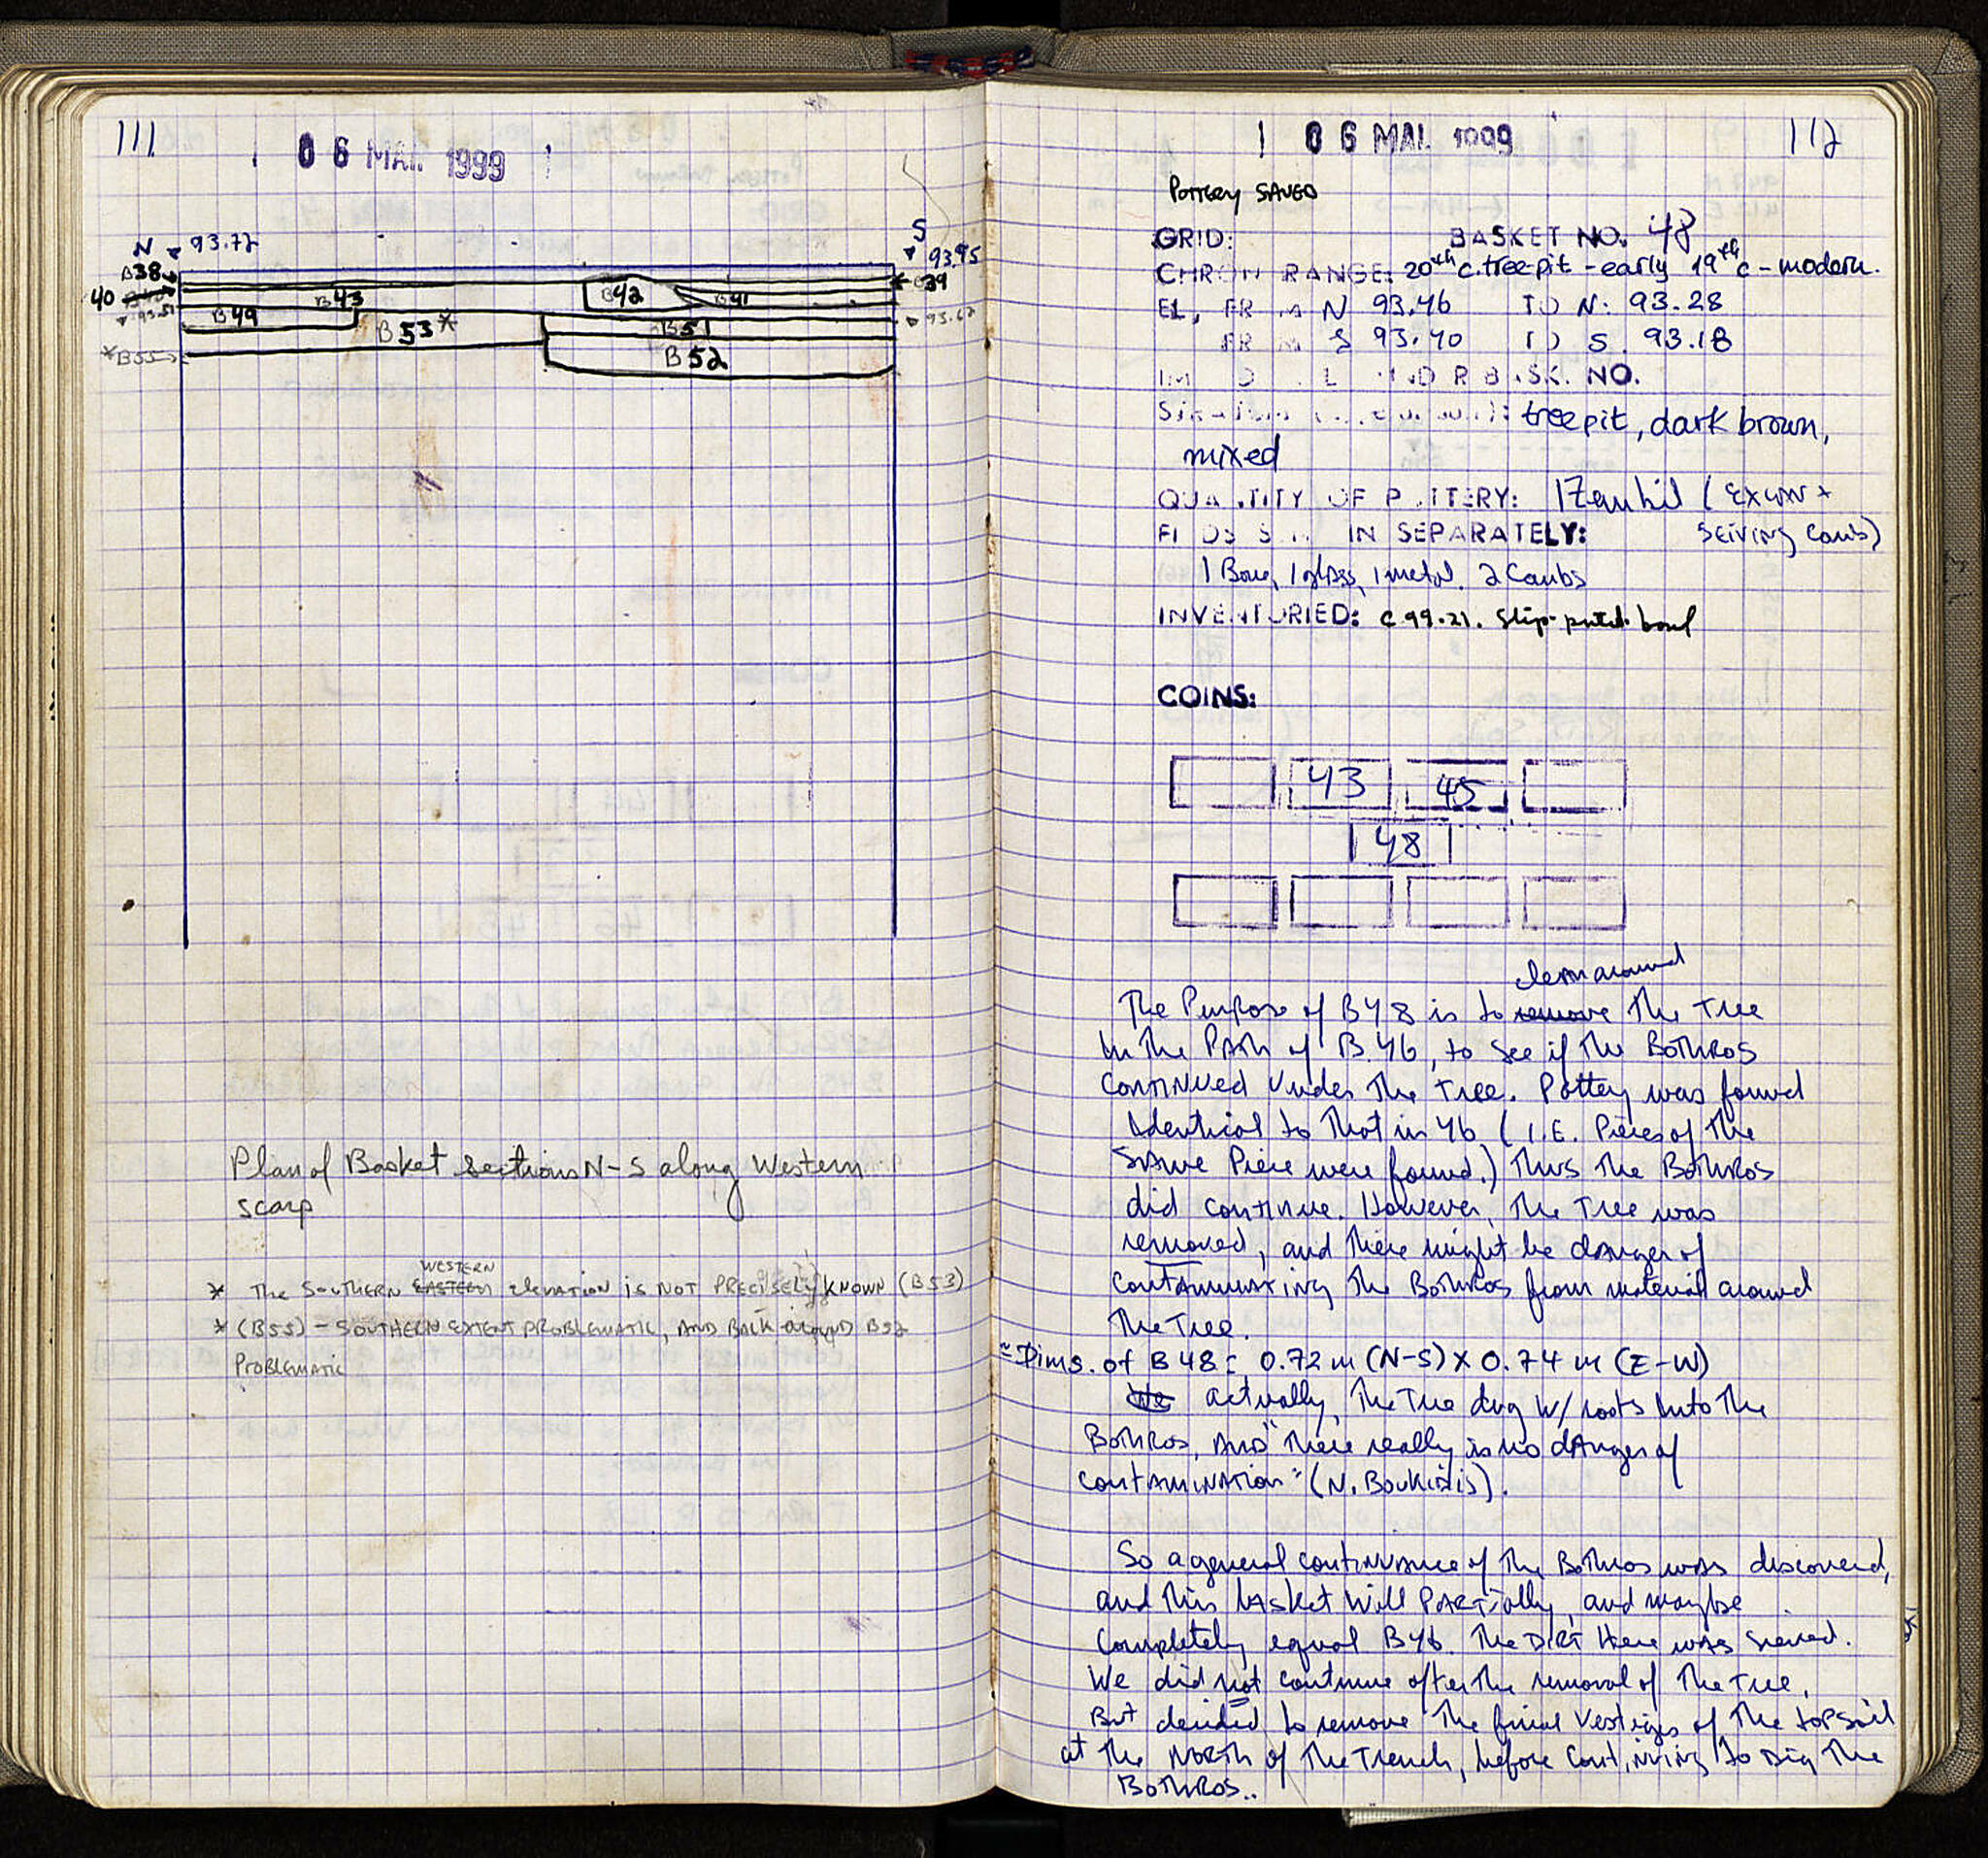 111
06 MAI 1999
N 93.77
S 93.95
B38
B39
40
B43
B42
B41
B49
93.51
93.62
B53*
B51
*B55
B52
Plan of Basket sections N-S along Western
scarp
WESTERN
* The Southern EASTERN elevation is NOT PRECISELY KNOWN (B53)
* (B55) - SOUTHERN EXTENT PROBLEMATIC, AND BACK around B52
PROBLEMATIC
06 MAI 1999
112
Pottery SAVED
GRID: BASKET NO. 48
CHRON RANGE: 20th c. tree pit - early 19th c - modern.
EL, FR M N 93.46 TO N: 93.28
FR M S 93.40 TO S. 93.18
NO.
tree pit, dark brown,
mixed
QUANTITY OF POTTERY: 1 Zembil (excav +
FI DS S IN SEPARATELY: seiving comb)
1 Bone, 1 glass, 1 metal. 2 Combs
INVENTORIED: C.99.21. slip-painted bowl
COINS:
43 45
48
clean around
The Purpose of B48 is to remove The Tree
in The Path of B.46, to see if The Bothros
continued under The Tree. Pottery was found
identical to That in 46 (I.E. Pieces of The
same Piece were found.) Thus The Bothros
did continue. However, The Tree was
removed, and There might be danger of
contaminating The Bothros from material around
The Tree.
≈ Dims. of B48: 0.72 m (N-S) X 0.74 m (E-W)
We actually, The Tree dug w/ roots into The
Bothros, and "There really is no danger of
contamination" (N. Bookidis).
So a general continuance of The Bothros was discovered,
and This basket will PARTially, and maybe
completely equal B46. The DIRT Here was sieved.
We did not continue after the removal of The Tree,
But decided to remove The final vestiges of The topsoil
at The NORTH of The Trench, before continuing to Dig The
Bothros..